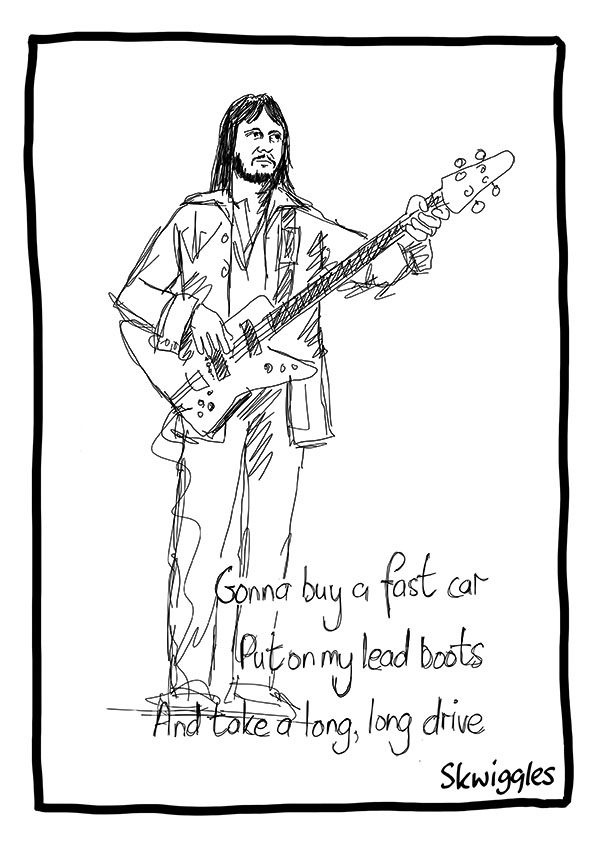 Gonna buy a fast car
Put on my lead boots
And take a long, long drive
Skwiggles